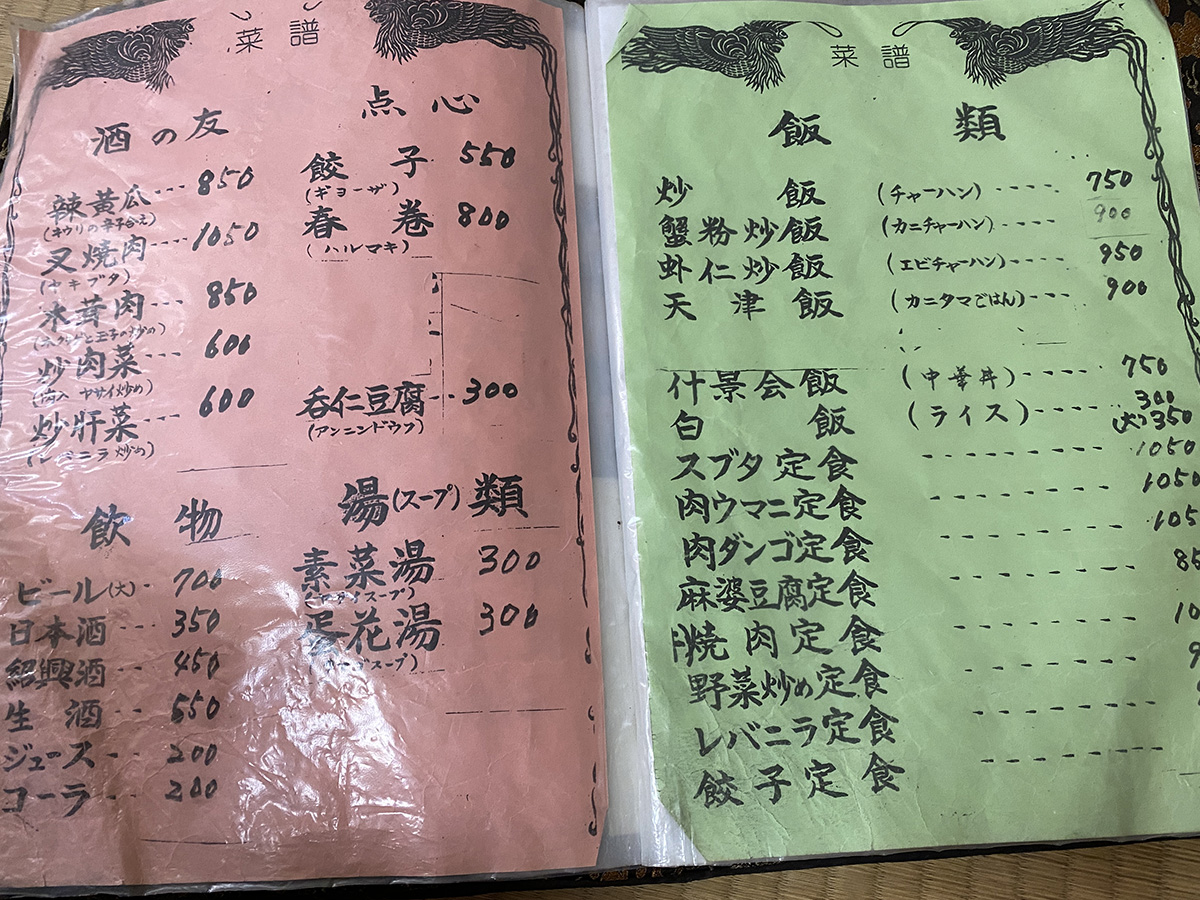 菜譜
酒の友
辣黄瓜---850
(キウリの辛子合え)
叉焼肉---1050
(ヤキブタ)
木茸肉---850
炒肉菜---600
(肉入ヤサイ炒め)
炒肝菜---600
(レバニラ炒め)
飲物
ビール(大)-700
日本酒--350
紹興酒--450
生酒--550
ジュース--200
コーラ---200
点心
餃子 550
(ギョーザ)
春巻 800
(ハルマキ)
呑仁豆腐--300
(アンニンドウフ)
湯(スープ)類
素菜湯 300
(ヤサイスープ)
蛋花湯 300
菜譜
飯類
炒飯(チャーハン)----750
蟹粉炒飯(カニチャーハン)---900
虾仁炒飯(エビチャーハン)---950
天津飯(カニタマごはん)---900
什景会飯(中華丼)----750
白飯(ライス)----300
(大)350
スブタ定食--------1050
肉ウマニ定食--------1050
肉ダンゴ定食--------105
麻婆豆腐定食--------85
焼肉定食--------10
野菜炒め定食--------9
レバニラ定食--------
餃子定食--------